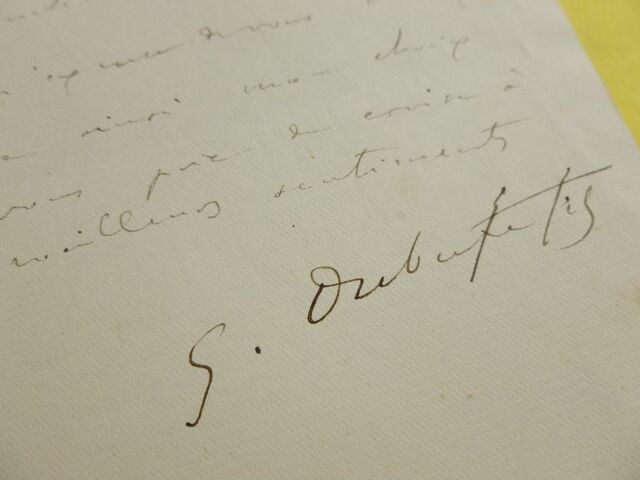 vous
ainsi mon choix
vous prie de croire à
meilleurs sentiments
G. Dubufe fils